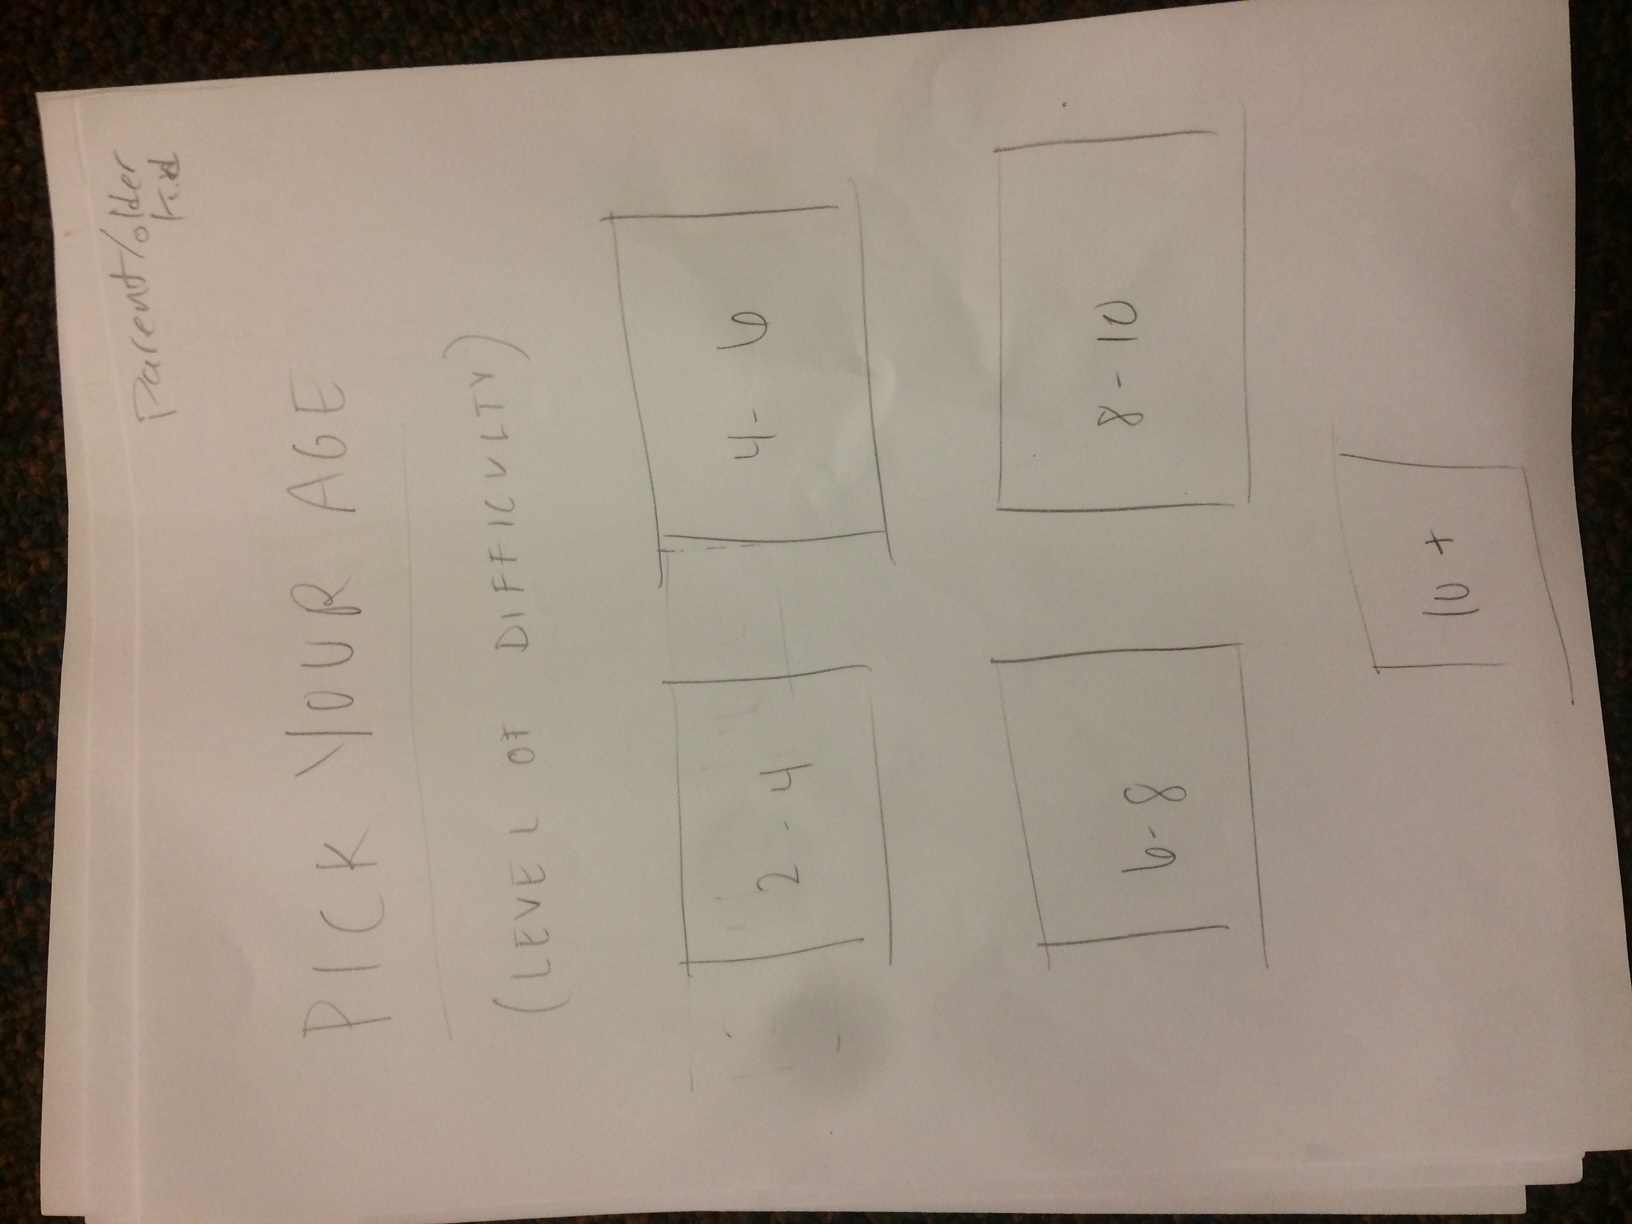 Parent/older
Kid
PICK YOUR AGE
(LEVEL OF DIFFICULTY)
2 - 4
4 - 6
6 - 8
8 - 10
10 +